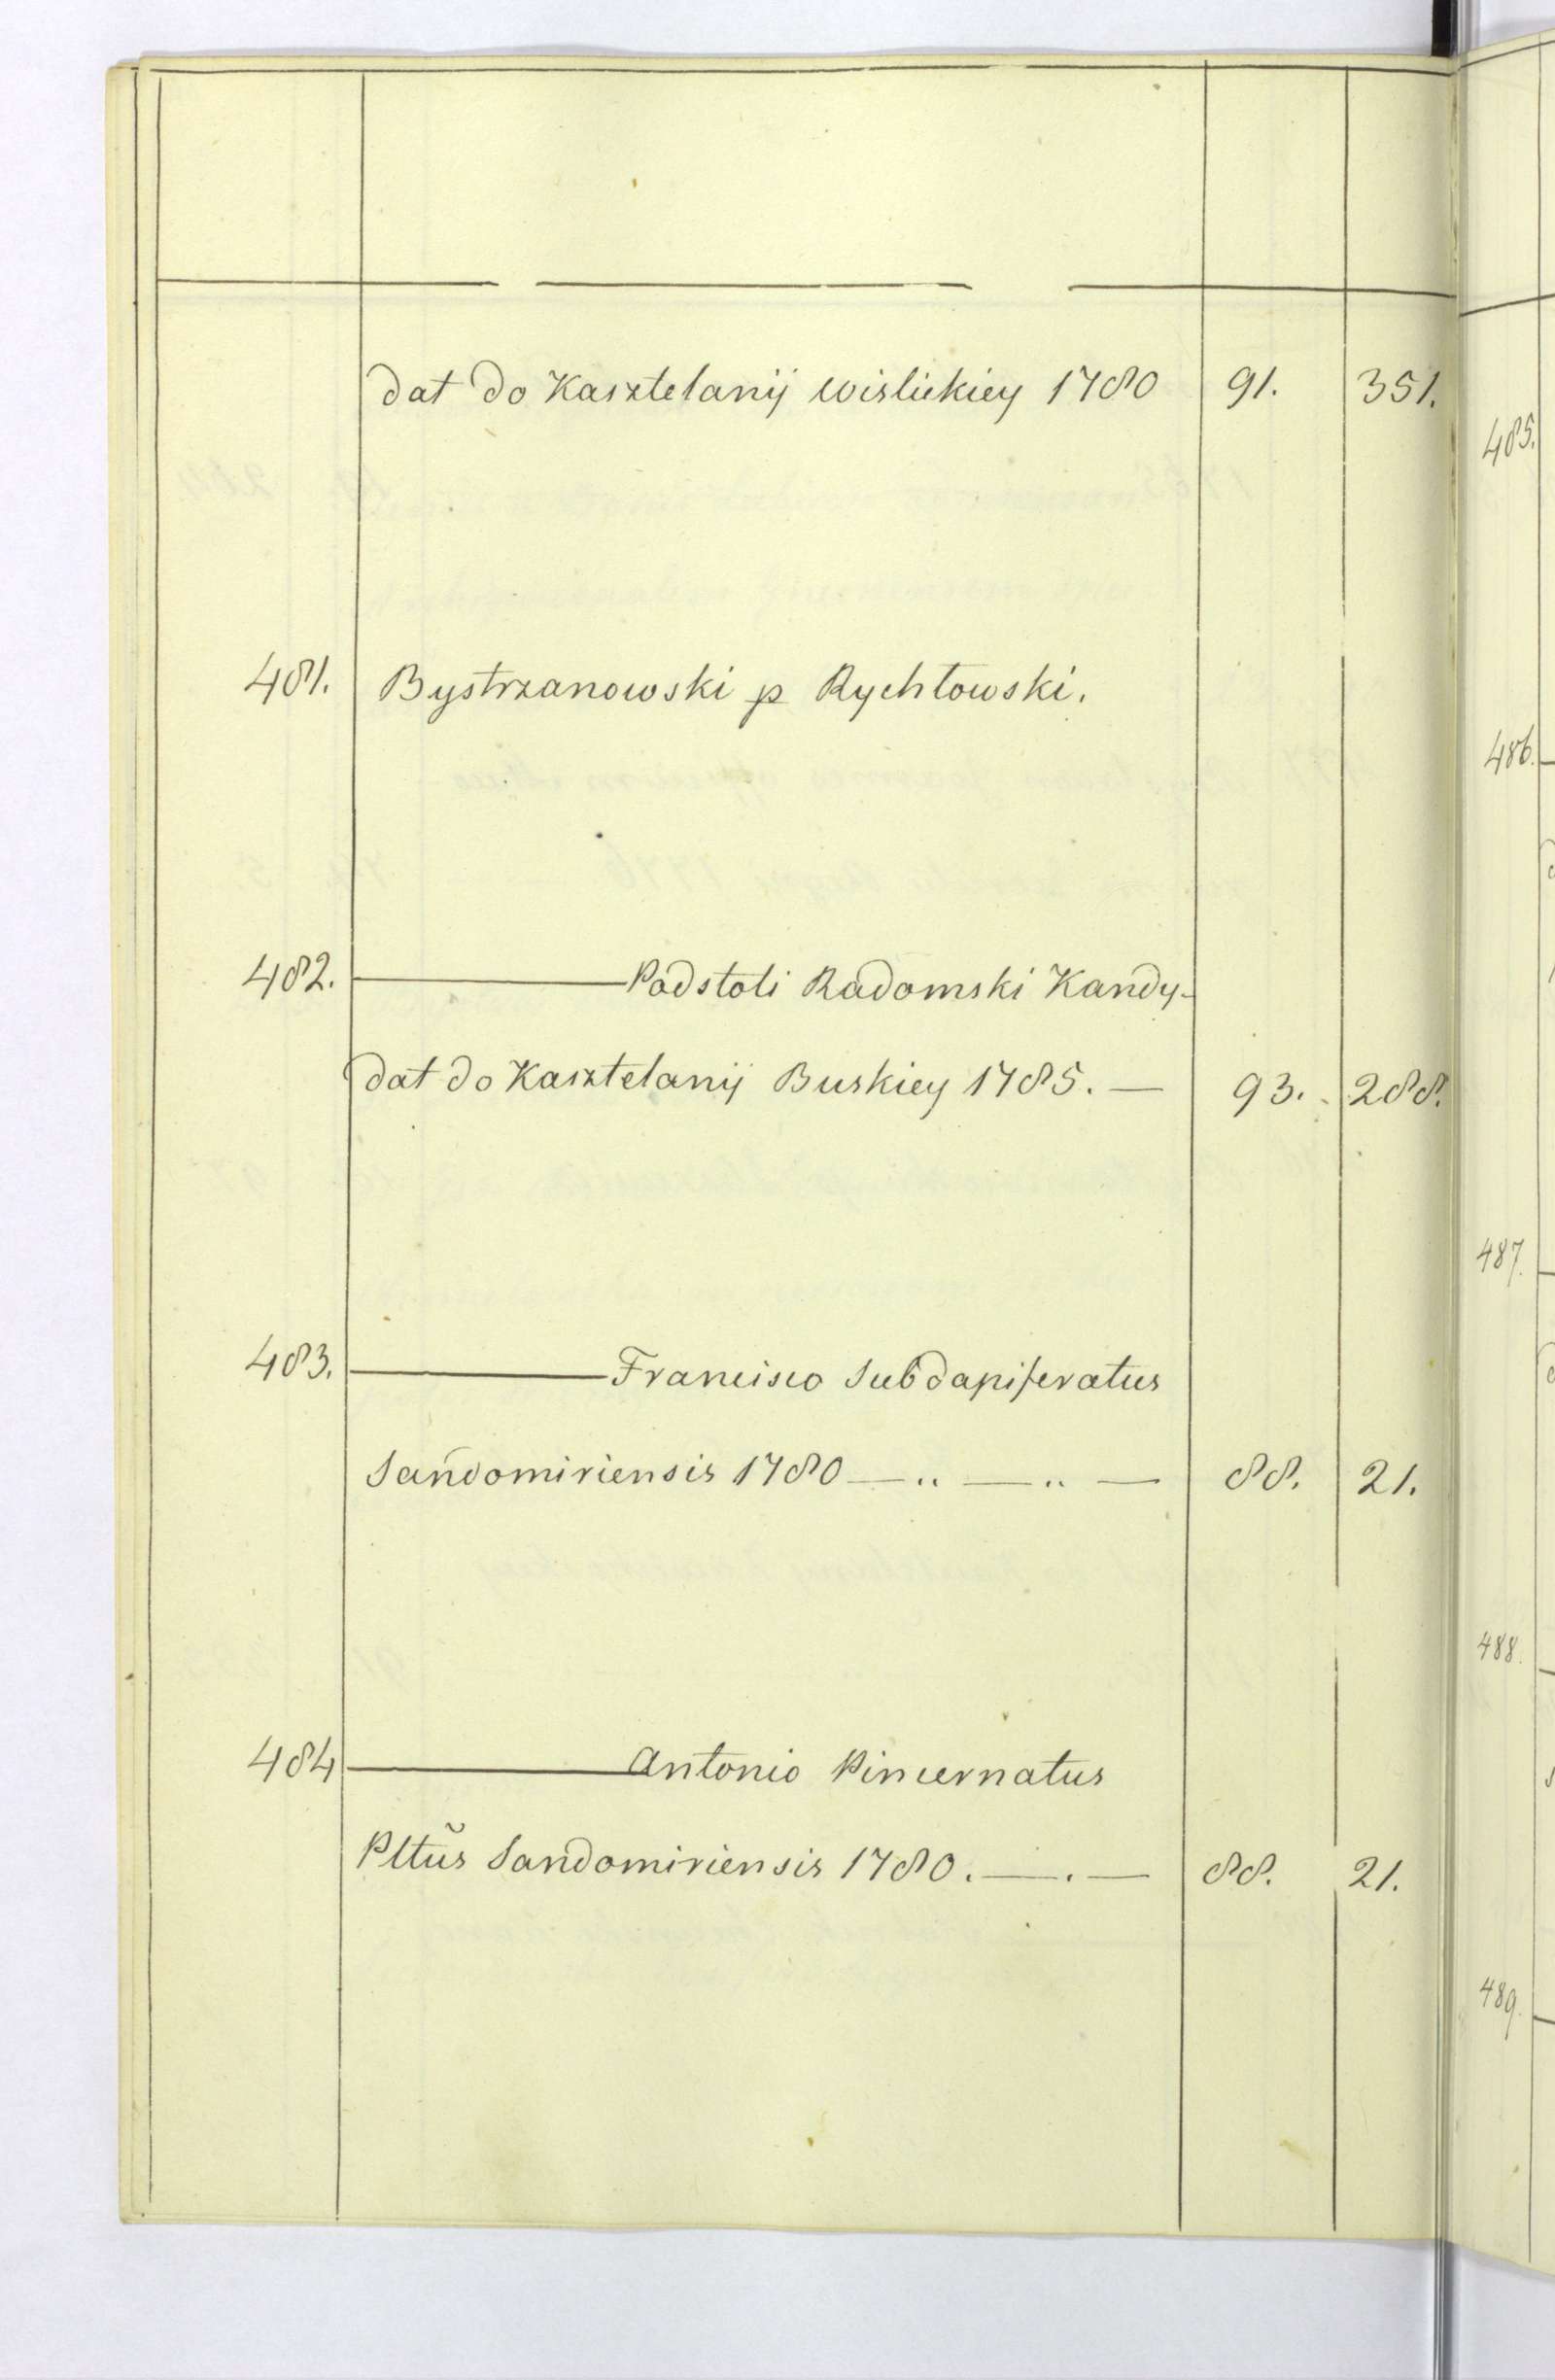 dat do Kasztelanij Wislickiey 1780 91. 351.
481. Bystrzanowski p Rychłowski.
482. ——— Podstoli Radomski Kandy-
dat do Kasztelanij Buskiey 1785. — 93. 288.
483. ——— Francisco Subdapiferatus
Sandomiriensis 1780 — „ — „ — 88. 21.
484 ——— Antonio Pincernatus
Pltũs Sandomiriensis 1780. — . — 88. 21.
485.
486.
487.
488.
489.